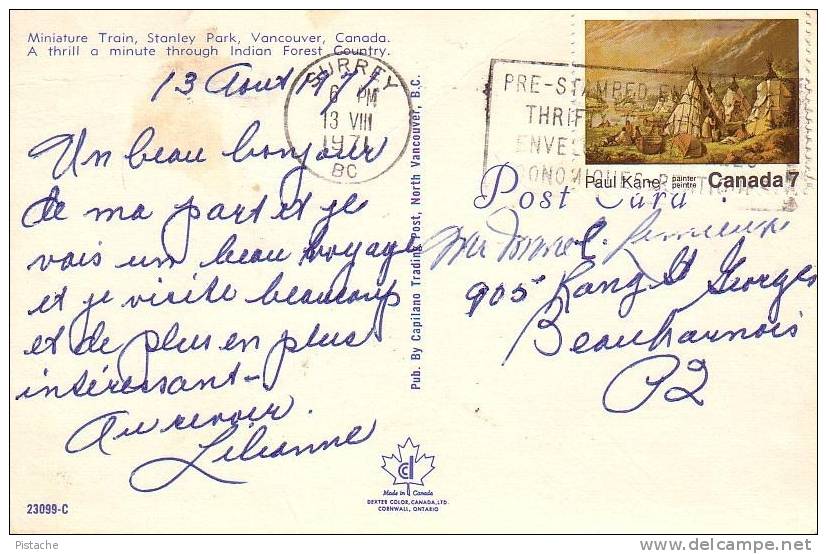 Miniature Train, Stanley Park, Vancouver, Canada.
A thrill a minute through Indian Forest Country.
13 Aout 1971
Un beau bonjour
de ma part et je
vais un beau voyage
et je visite beaucoup
et de plus en plus
intéressant-
Au revoir.
Lilianne
23099-C
SURREY
6 PM
13 VIII
1971
BC
PRE-STAMPED
THRIF
ENVE
CONOMIQUES
Paul Kane painter
peintre
Canada 7
Post Card
905 Rang St Georges
Beauharnois
P2
Pub. By Capilano Trading Post, North Vancouver, B.C.
Made in Canada
DEXTER COLOR, CANADA, LTD.
CORNWALL, ONTARIO
Pistache
http://www.delcampe.net